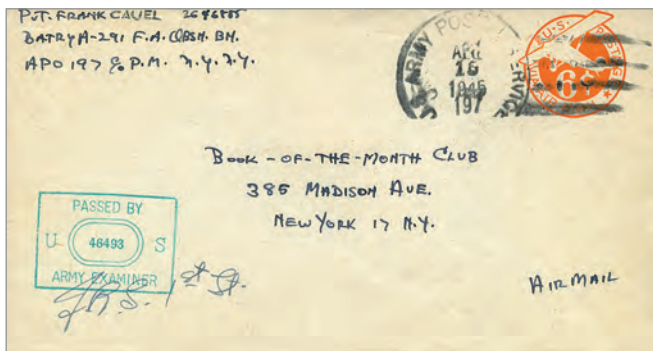 PVT. FRANK CAUEL
BATRY A-291 F.A. OBSN. BN.
APO 197 % P.M. N.Y. N.Y.
U.S. ARMY POSTAL SERVICE
APR
16
1945
197
U.S. POSTAGE
6¢
VIA AIR MAIL
BOOK-OF-THE-MONTH CLUB
385 MADISON AVE.
NEW YORK 17 N.Y.
PASSED BY
U 46493 S
ARMY EXAMINER
1st Lt.
AIRMAIL